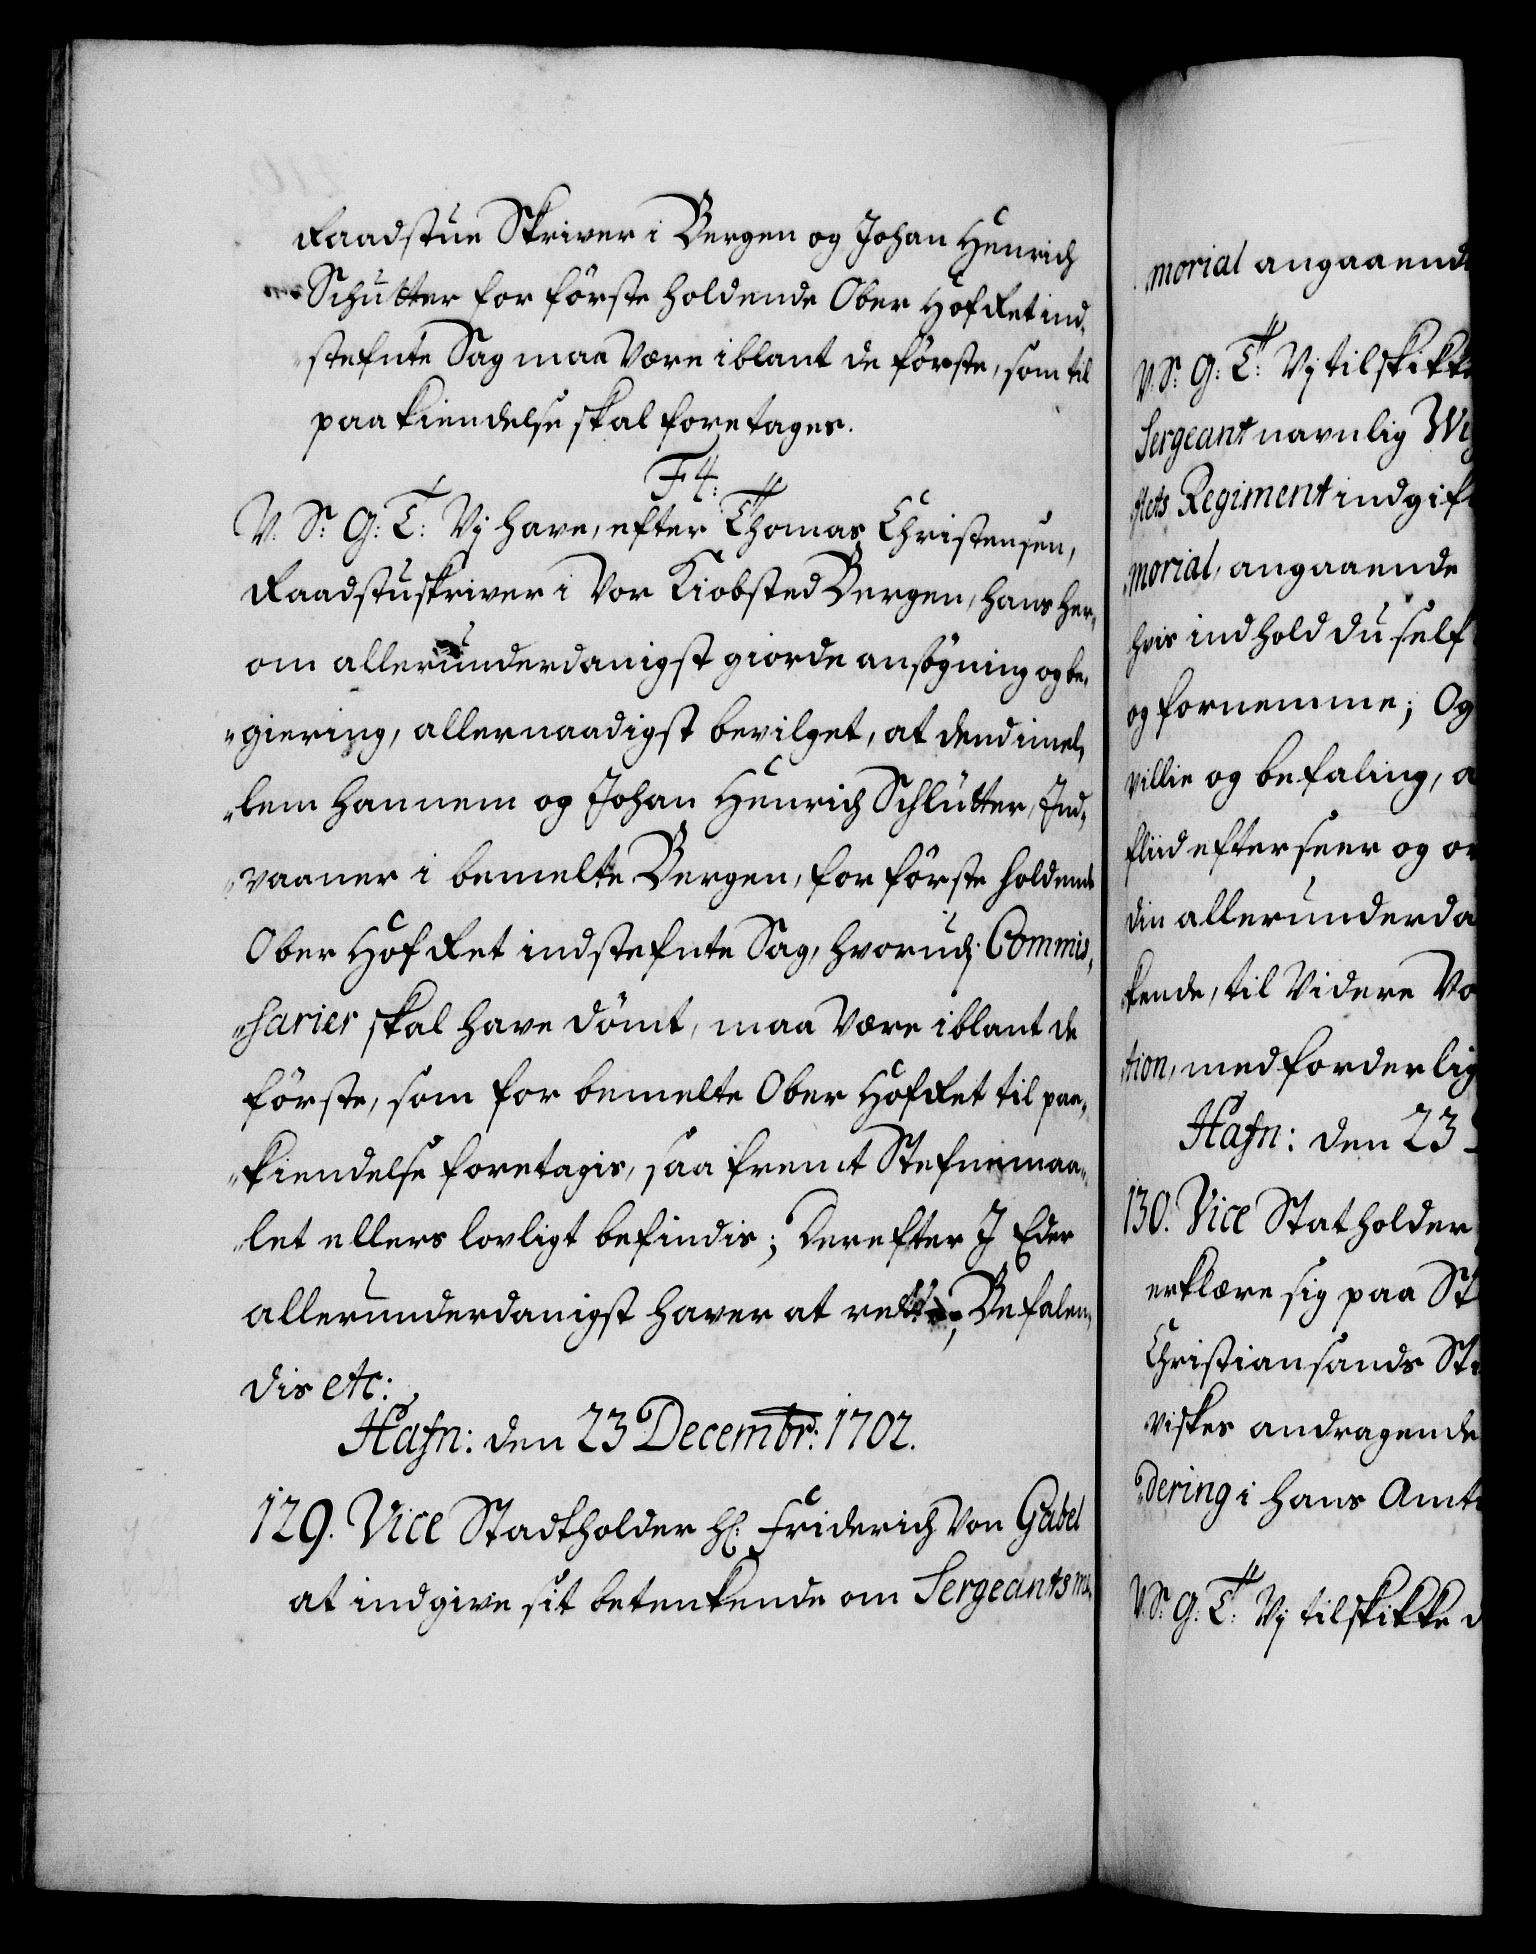 Raadstue Skriver i Bergen og Johan Henrich
Schutter for förste holdende Ober Hof Ret ind-
stefnte Sag maa være iblant de förste, som til
paakiendelse skal foretages.
F 4:
V. S: G: T: Vj have, efter Thomas Christensen,
Raadstuskriver i Vor Kiobsted Bergen, hans her-
om allerunderdanigst giorde ansögning og be-
giering, allernaadigst bevilget, at dend imel-
lem hannem og Johan Henrich Schlutter, Ind-
vaaner i bemelte Bergen, for förste holdende
Ober Hof Ret indstefnte Sag, hvorudj Commis-
sarier skal have dömt, maa være iblant de
förste, som for bemelte Ober Hof Ret til paa-
kiendelse foretagis, saa fremt Stefnemaa-
let ellers lovligt befindis; Derefter I Eder
allerunderdanigst haver at rette; Befalen-
dis etc:
Hafn: den 23 Decembr: 1702.
129. Vice Stadtholder H: Friderich Von Gabel
at indgive sit betenkende om Sergeants me-
morial angaaende
V. S: G: T: Vj tilskikke
Sergeant navnlig
Regiment indgif
morial, angaaende
hvis indhold du self
og fornemme; Og
villie og befaling, a
fliid efterseer og
din allerunderda
kende, til Videre Vo
tion, med forderlig
Hafn: den 23
130. Vice Statholder
erklære sig paa St
Christiansands St
viskes andragende
dering i hans Amt
V. S: G: T: Vj tilskikke d